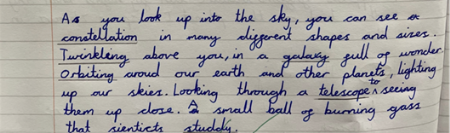 As you look up into the sky, you can see a
constellation in many different shapes and sizes.
Twinkling above you, in a galaxy full of wonder
Orbiting aroud our earth and other planets, lighting
up our skies. Looking through a telescope to seeing
them up close. A small ball of burning gass
that sienticts studdy.